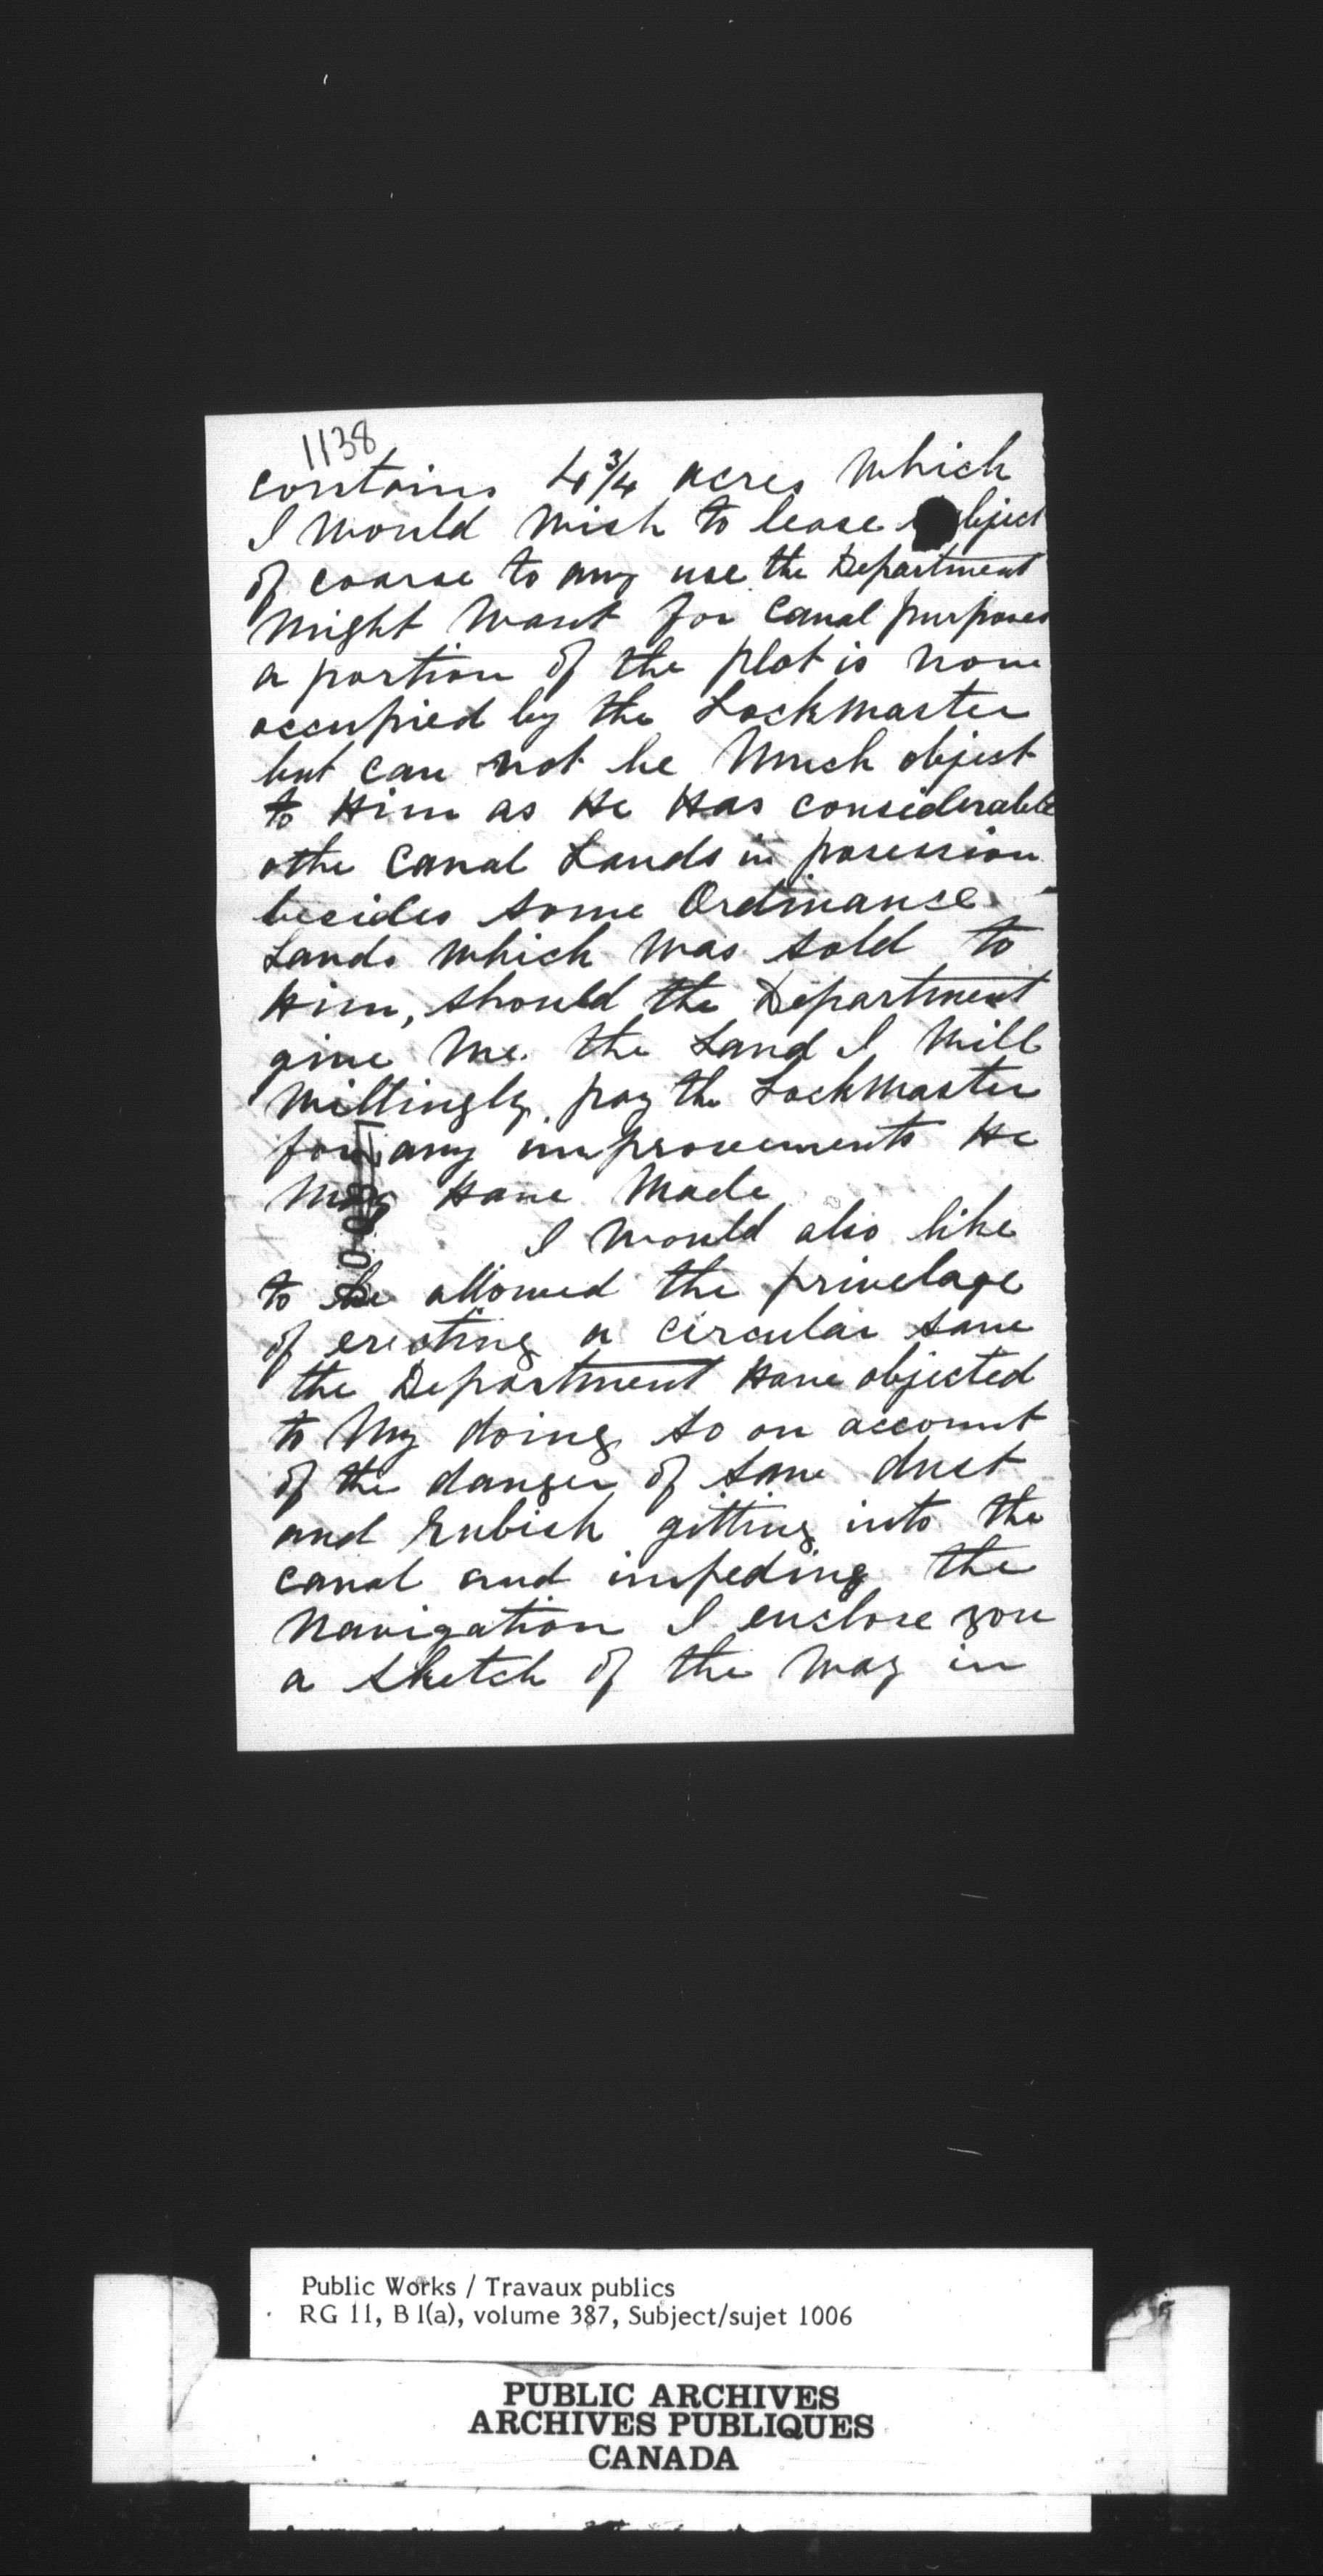 1138
contains 4 3/4 acres which
I would wish to lease subject
of coarse to any use the Department
might want for Canal purposes
a portion of the plot is now
occupied by the Lockmaster
but can not be much object
to Him as He Has considerable
othe Canal Lands in posession
besides some Ordinanse
Lands which was sold to
Him, should the Department
give me the Land I will
willingly pay the Lockmaster
for any improvements He
may Have made
I would also like
to be allowed the privelage
of erecting a circular saw
the Department Have objected
to my doing so on account
of the danger of saw dust
and rubish gitting into the
canal and impeding the
navigation I enclose you
a sketch of the way in
Public Works / Travaux publics
RG 11, B 1(a), volume 387, Subject/sujet 1006
PUBLIC ARCHIVES
ARCHIVES PUBLIQUES
CANADA